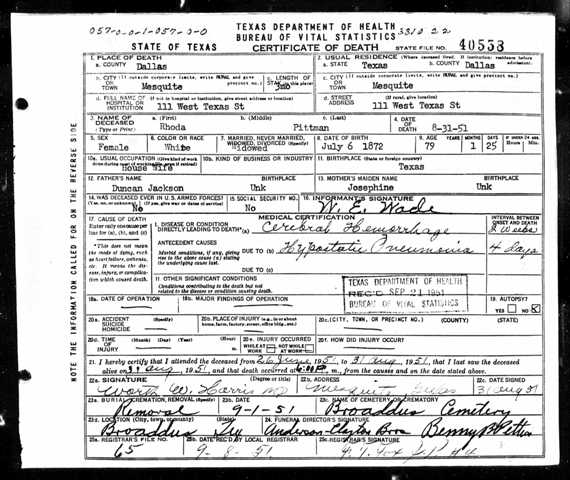 057-0-0-1-057-0-0
TEXAS DEPARTMENT OF HEALTH
BUREAU OF VITAL STATISTICS
STATE OF TEXAS
CERTIFICATE OF DEATH
STATE FILE NO. 40553
1. PLACE OF DEATH
a. COUNTY Dallas
2. USUAL RESIDENCE (Where deceased lived. If institution: residence before admission).
a. STATE Texas
b. COUNTY Dallas
b. CITY (If outside corporate limits, write RURAL and give precinct no.)
OR TOWN Mesquite
c. LENGTH OF STAY 3mo
c. CITY (If outside corporate limits, write RURAL and give precinct no.)
OR TOWN Mesquite
d. FULL NAME OF HOSPITAL OR INSTITUTION (If not in hospital or institution, give street address or location)
111 West Texas St
d. STREET ADDRESS (If rural, give location)
111 West Texas St
3. NAME OF DECEASED (Type or Print)
a. (First) Rhoda
b. (Middle)
c. (Last) Pittman
4. DATE OF DEATH 8-31-51
5. SEX Female
6. COLOR OR RACE White
7. MARRIED, NEVER MARRIED, WIDOWED, DIVORCED (Specify) Widowed
8. DATE OF BIRTH July 6 1872
9. AGE 79
MONTHS 1
DAYS 25
10a. USUAL OCCUPATION House Wife
10b. KIND OF BUSINESS OR INDUSTRY
11. BIRTHPLACE (State or foreign country) Texas
12. FATHER'S NAME Duncan Jackson
BIRTHPLACE Unk
13. MOTHER'S MAIDEN NAME Josephine
BIRTHPLACE Unk
14. WAS DECEASED EVER IN U.S. ARMED FORCES? No
15. SOCIAL SECURITY NO. No
16. INFORMANT'S SIGNATURE W. E. Wade
MEDICAL CERTIFICATION
17. CAUSE OF DEATH
Enter only one cause per line for (a), (b), and (c)
I. DISEASE OR CONDITION DIRECTLY LEADING TO DEATH* (a) Cerebral Hemorrhage
INTERVAL BETWEEN ONSET AND DEATH
*This does not mean the mode of dying, such as heart failure, asthenia, etc. It means the disease, injury, or complication which caused death.
ANTECEDENT CAUSES
Morbid conditions, if any, giving rise to the above cause (a) stating the underlying cause last.
DUE TO (b) Hypostatic Pneumonia 4 days
DUE TO (c)
II OTHER SIGNIFICANT CONDITIONS
Conditions contributing to the death but not related to the disease or condition causing death.
TEXAS DEPARTMENT OF HEALTH
REC'D SEP 21 1951
BUREAU OF VITAL STATISTICS
18a. DATE OF OPERATION
18b. MAJOR FINDINGS OF OPERATION
19. AUTOPSY? YES NO X
20a. ACCIDENT SUICIDE HOMICIDE (Specify)
20b. PLACE OF INJURY (e.g., in or about home, farm, factory, street, office bldg., etc.)
20c. (CITY, TOWN, OR PRECINCT NO.) (COUNTY) (STATE)
20d. TIME OF INJURY (Month) (Day) (Year) (Hour)
20e. INJURY OCCURRED WHILE AT WORK NOT WHILE AT WORK
20f. HOW DID INJURY OCCUR?
21. I hereby certify that I attended the deceased from 26 June, 1951, to 31 Aug, 1951, that I last saw the deceased
alive on 31 Aug, 1951, and that death occurred at m., from the causes and on the date stated above.
22a. SIGNATURE (Degree or title) Worth W. Harris MD
22b. ADDRESS Mesquite Texas
22c. DATE SIGNED 31 Aug 51
23a. BURIAL, CREMATION, REMOVAL (Specify) Removal
23b. DATE 9-1-51
23c. NAME OF CEMETERY OR CREMATORY Broaddus Cemetery
23d. LOCATION (City, town, or county) (State) Broaddus Tex
24. FUNERAL DIRECTOR'S SIGNATURE Anderson-Clayton Bros
25a. REGISTRAR'S FILE NO. 65
25b. DATE REC'D BY LOCAL REGISTRAR 9-8-51
25c. REGISTRAR'S SIGNATURE
NOTE THE INFORMATION CALLED FOR ON THE REVERSE SIDE